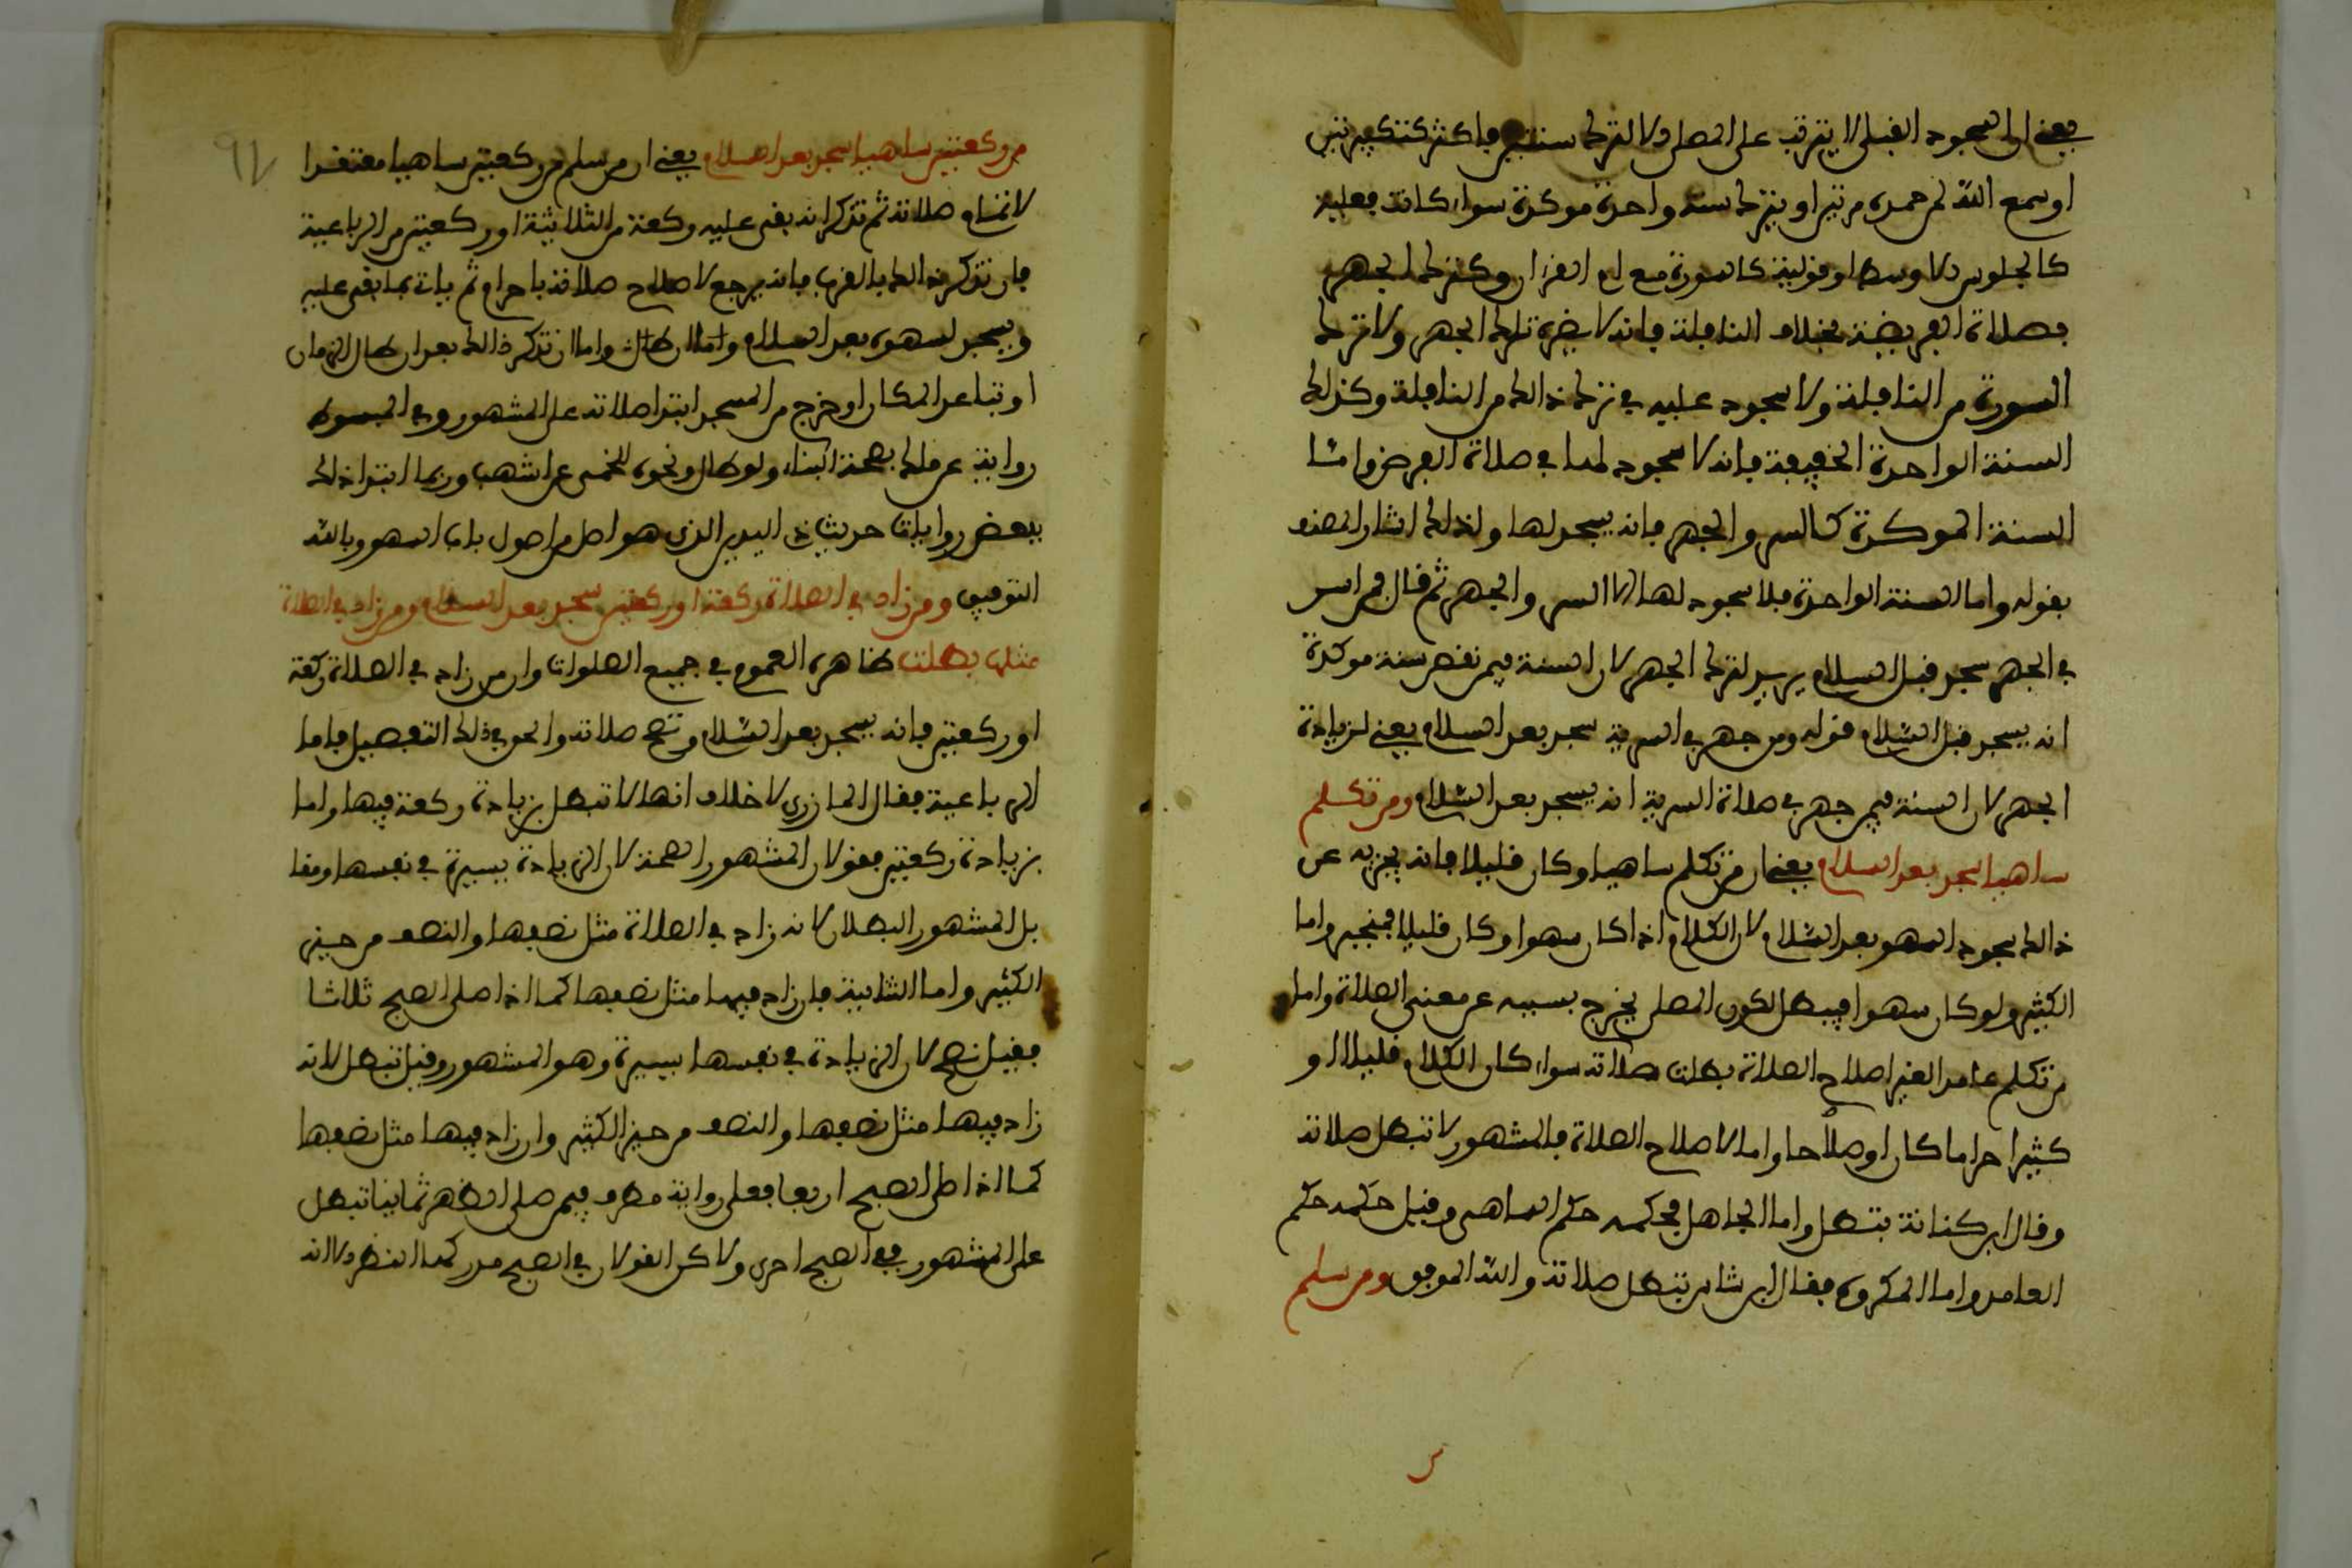 يعني ان السجود القبلي لا يترتب على المصلي الا لترك سنتين فاكثر كتكبيرتين
او سمع الله لمن حمده مرتين او بترك سنة واحدة موكدة سواء كانت فعلية
كالجلوس الاوسط او قولية كالسورة مع ام القرءان وكترك الجهر
بصلاة الفريضة بخلاف النافلة فانه لا يضره ترك الجهر ولا ترك
السورة من النافلة ولا سجود عليه في ترك ذالك من النافلة وكذلك
السنة الواحدة الخفيفة فانه لا سجود لها في صلاة الفرض واما
السنة الموكدة كالسر والجهر فانه يسجد لها ولذلك اشار المصنف
بقوله واما السنة الواحدة فلا سجود لها الا السر والجهر ثم قال فمن اسر
في الجهر سجد قبل السلام يريد لترك الجهر لان السنة فيمن نقص سنة موكدة
انه يسجد قبل السلام قوله ومن جهر في السرية سجد بعد السلام يعني لزيادة
الجهر لان السنة فيمن جهر في صلاة السرية انه يسجد بعد السلام ومن تكلم
ساهيا سجد بعد السلام يعني ان من تكلم ساهيا وكان قليلا فانه يجزيه عن
ذالك سجود السهو بعد السلام لان الكلام اذا كان سهوا وكان قليلا فينجبر واما
الكثير ولو كان سهوا فيبطل لكون المصلي يخرج بسببه عن معنى الصلاة واما
من تكلم عامدا لغير اصلاح الصلاة بطلت صلاته سواء كان الكلام قليلا او
كثيرا حراما كان او صلاحا واما لاصلاح الصلاة فالمشهور لا تبطل صلاته
وقال ابن كنانة تبطل واما الجاهل فحكمه حكم الساهي وقيل حكمه حكم
العامد واما المكروه فقال ابن شاس تبطل صلاته والله الموفق ومن سلم
من ركعتين ساهيا سجد بعد السلام يعني ان من سلم من ركعتين ساهيا معتقدا
لاتمام صلاته ثم تذكر انه بقي عليه ركعة من الثلاثية او ركعتين من الرباعية
فان تذكر ذالك بالقرب فانه يرجع لاصلاح صلاته باحرام ثم يات بما بقي عليه
ويسجد لسهوه بعد السلام واما ان طال واما ان تذكر ذالك بعد ان طال الزمان
او تباعد المكان او خرج من المسجد ابتدا صلاته على المشهور وفي المبسوط
رواية عن ملك بصحة البناء ولو طال ونحوه للخمي عن اشهب وربما ابتدا ذالك
ببعض روايات حديث ذي اليدين الذي هو اصل من اصول باب السهو وبالله
التوفيق ومن زاد في الصلاة ركعة او ركعتين سجد بعد السلام ومن زاد في الصلاة
مثلها بطلت ظاهره العموم في جميع الصلوات وان من زاد في الصلاة ركعة
او ركعتين فانه يسجد بعد السلام وتصح صلاته والحق في ذلك التفصيل فاما
الرباعية فقال المازري لا خلاف انها لا تبطل بزيادة ركعة فيها واما
بزيادة ركعتين فقولان المشهور الصحة لان الزيادة يسيرة في نفسها ومقا
بل المشهور البطلان لانه زاد في الصلاة مثل نصفها والنصف من حيز
الكثير واما الثنايية فان زاد فيها مثل نصفها كما اذا صلى الصبح ثلاثا
فقيل تصح لان الزيادة في نفسها يسيرة وهو المشهور وقيل تبطل لانه
زاد فيها مثل نصفها والنصف من حيز الكثير وان زاد فيها مثل نصفها
كما اذا صلى الصبح اربعا فعلى رواية مطرف فيمن صلى الظهر ثمانيا تبطل
على المشهور ففي الصبح احرى ولاكن القولان في الصبح مدركهما النظر الا انه